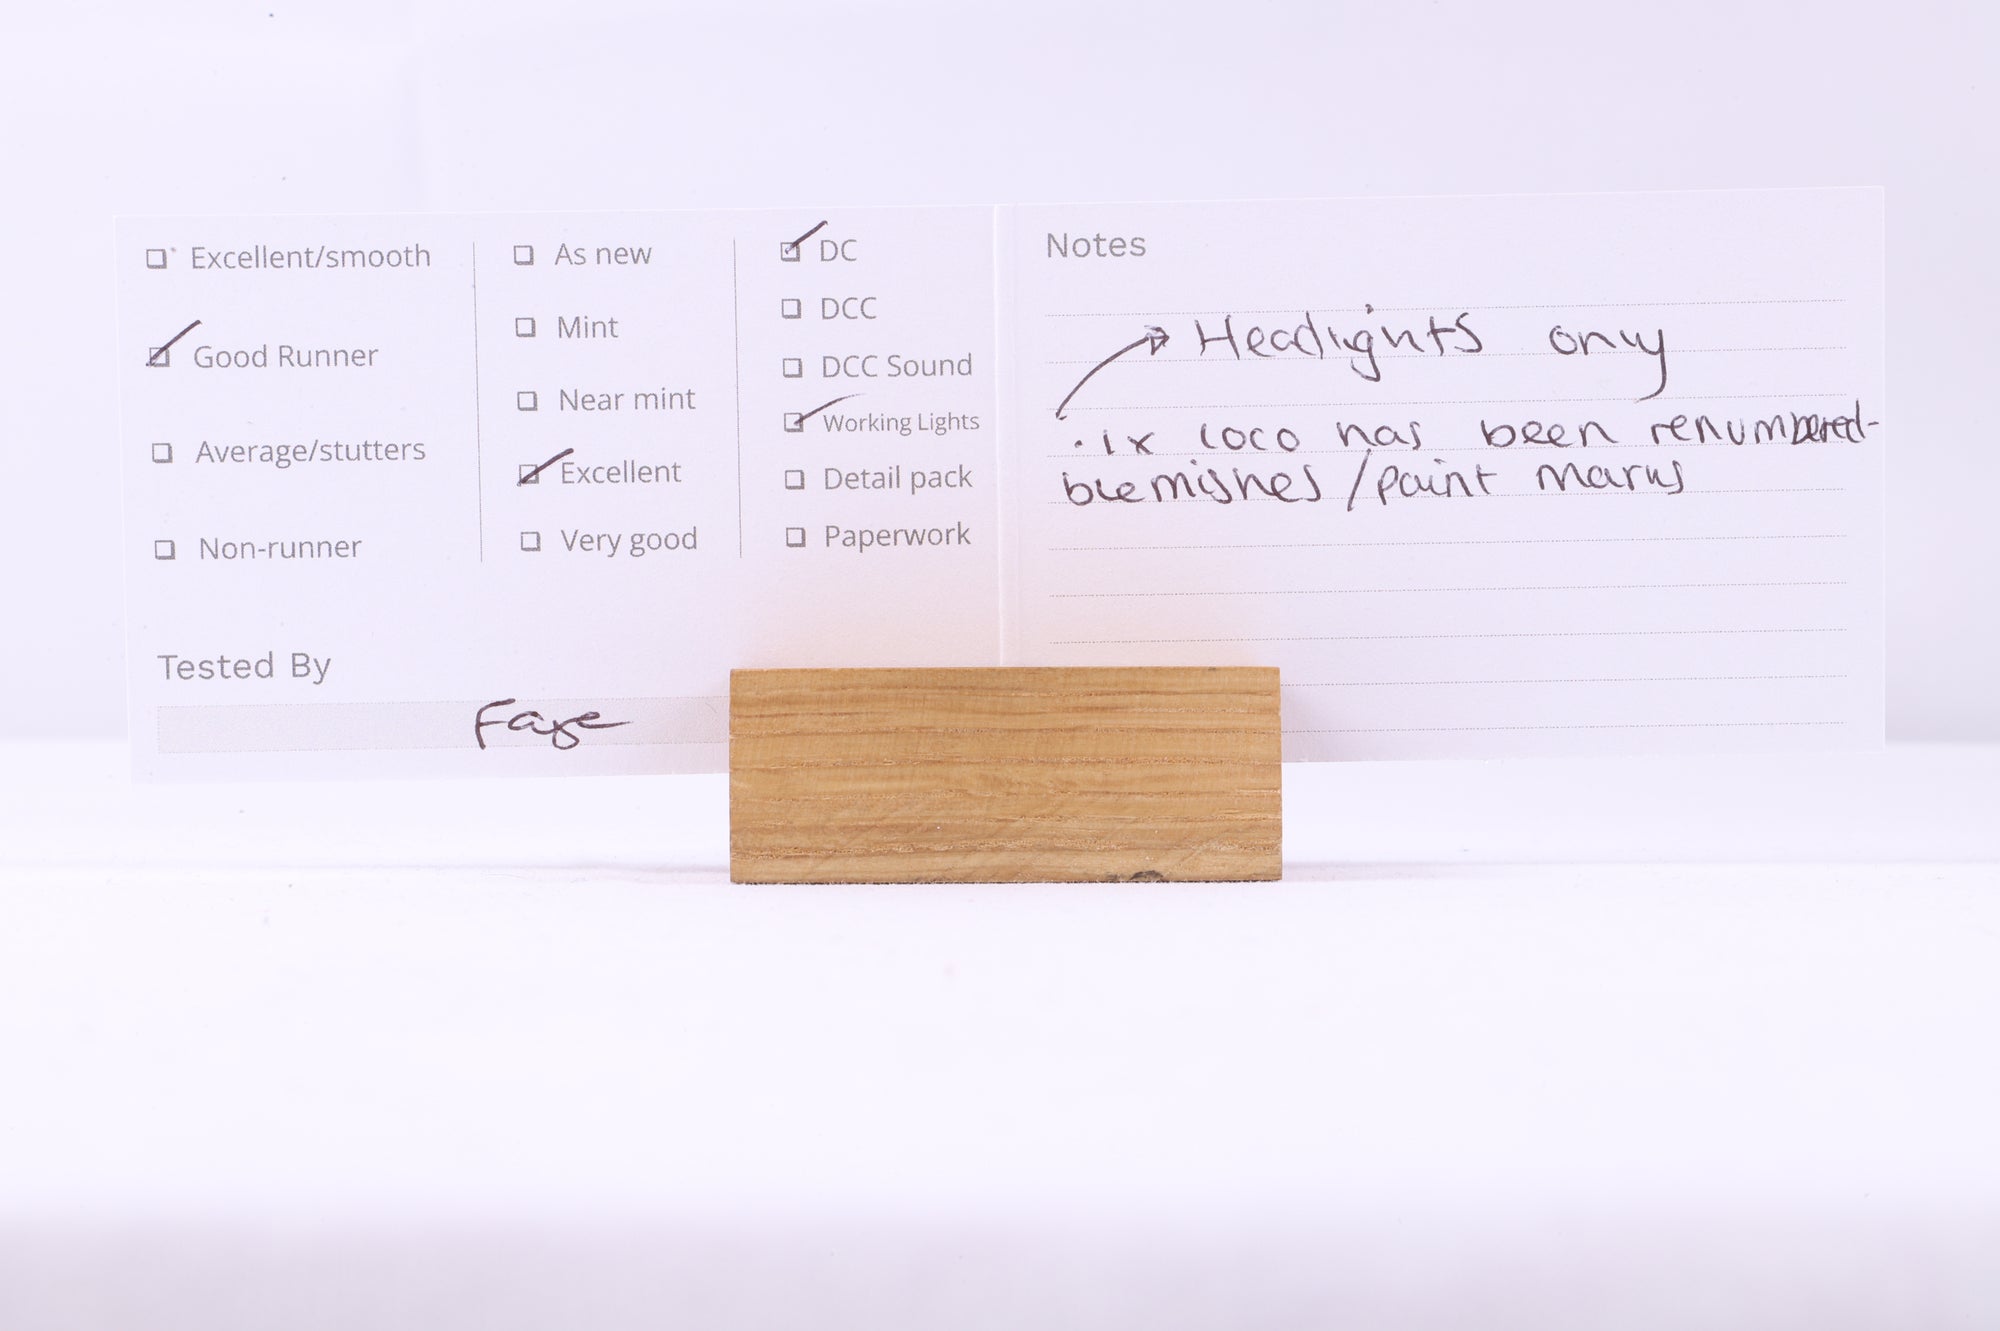 Excellent/smooth
Good Runner
Average/stutters
Non-runner
As new
Mint
Near mint
Excellent
Very good
DC
DCC
DCC Sound
Working Lights
Detail pack
Paperwork
Tested By
Faye
Notes
Headlights only
· 1x loco has been renumbered-
blemishes / paint marks